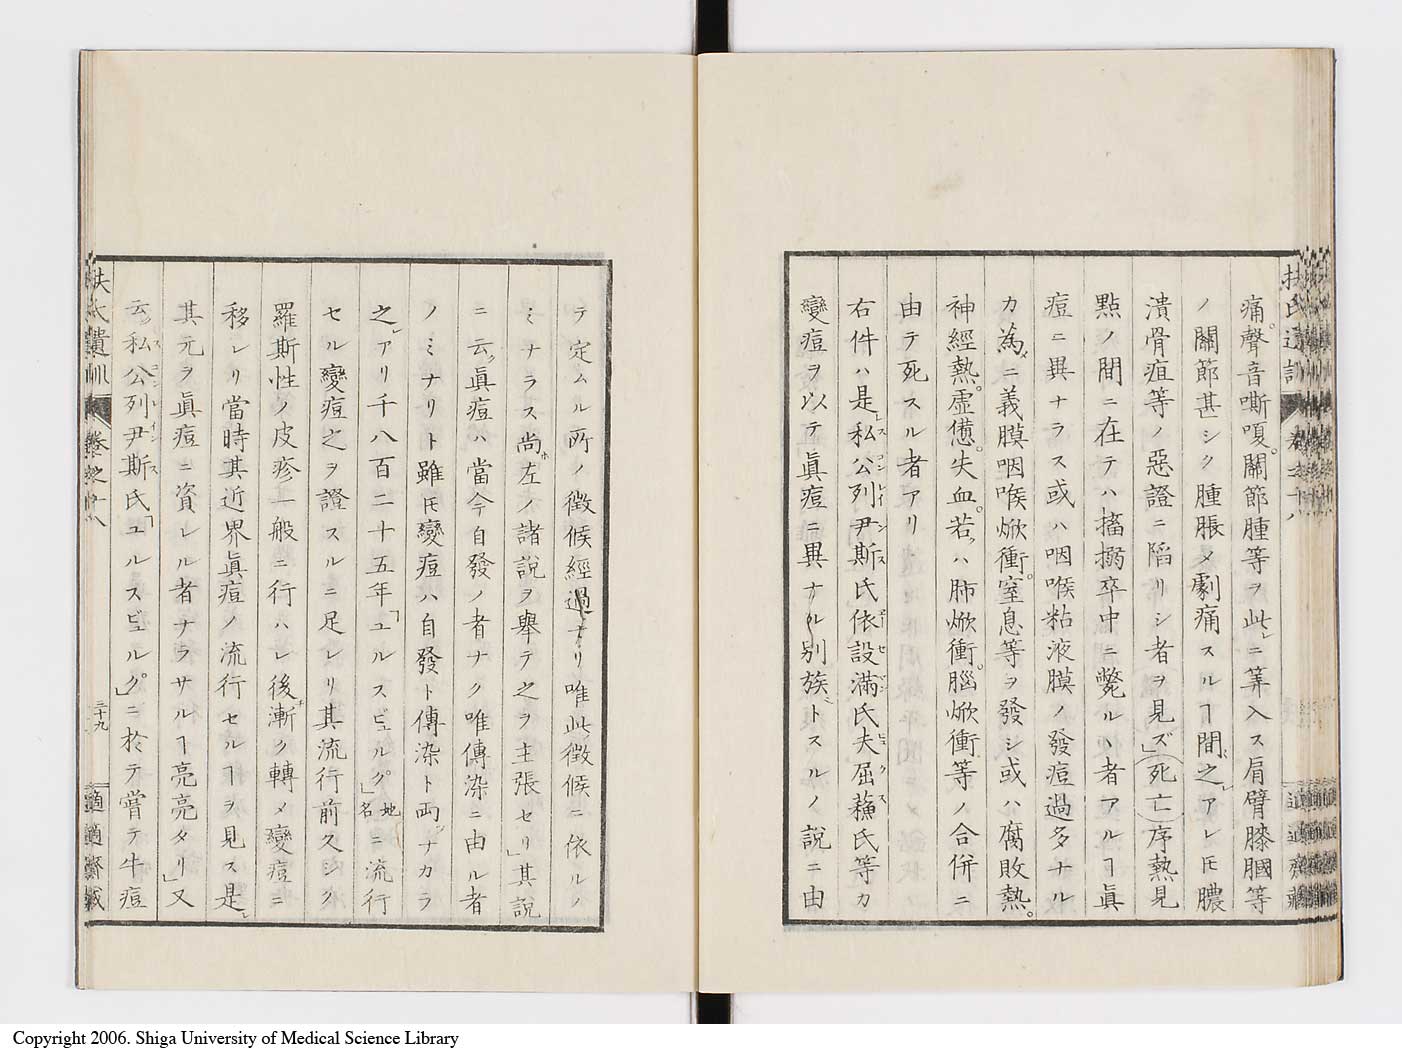 痛。聲音嘶嗄。關節腫等ヲ此ニ算入ス肩臂膝膕等
ノ關節甚シク腫脹メ劇痛スルヿ間之アレ𪜈膿
潰骨疽等ノ惡證ニ陷リシ者ヲ見ズ」(死亡)序熱見
點ノ間ニ在テハ搐搦卒中ニ斃ルヽ者アルヿ眞
痘ニ異ナラス或ハ咽喉粘液膜ノ發痘過多ナル
カ為メニ義膜咽喉焮衝。窒息等ヲ發シ或ハ腐敗熱。
神經熱。虛憊。失血。若クハ肺焮衝。腦焮衝等ノ合併ニ
由テ死スル者アリ
右件ハ是レ私公列尹斯氏依設滿氏夫屈蘓氏等カ
變痘ヲ以テ眞痘ニ異ナル別族トスルノ說ニ由
テ定ムル所ノ徵候經過ナリ唯此徵候ニ依ルノ
ミナラス尚ホ左ノ諸說ヲ擧テ之ヲ主張セリ」其說
ニ云ク眞痘ハ當今自發ノ者ナク唯傳染ニ由ル者
ノミナリト雖𪜈變痘ハ自發ト傳染ト両ツナカラ
之レアリ千八百二十五年「ユルスビュルグ」地名ニ流行
セル變痘之ヲ證スルニ足レリ其流行前久シク
羅斯性ノ皮疹一般ニ行ハレ後漸ク轉メ變痘ニ
移レリ當時其近界眞痘ノ流行セルヿヲ見ス是レ
其元ヲ眞痘ニ資レル者ナラサルヿ亮亮タリ」又
云ク私公列尹斯氏「ユルスビュルグ」ニ於テ嘗テ牛痘
扶氏遺訓 卷之十八 二十九 適適齋藏
Copyright 2006. Shiga University of Medical Science Library